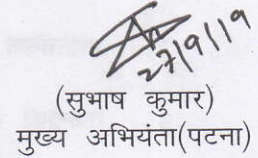 27/9/19
(सुभाष कुमार)
मुख्य अभियंता(पटना)